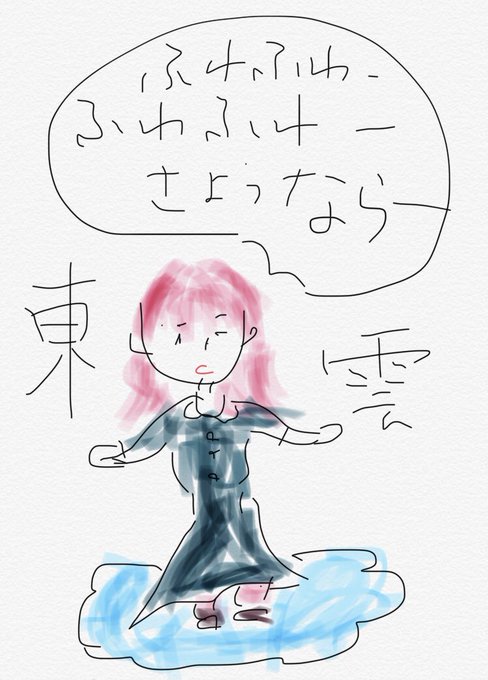 ふわふわー
ふわふわー
さようならー
東
雲